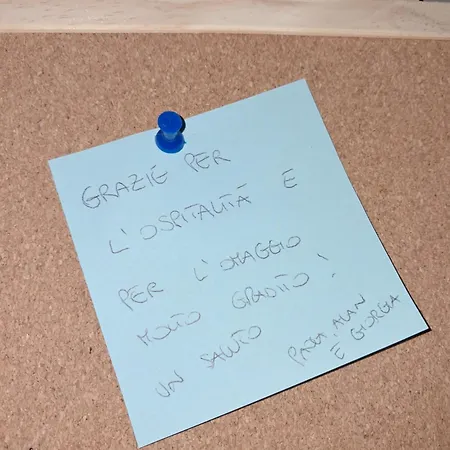 GRAZIE PER
L'OSPITALITÀ E
PER L'OMAGGIO
MOLTO GRADITO!
UN SALUTO
ALAN
E GIORGIA